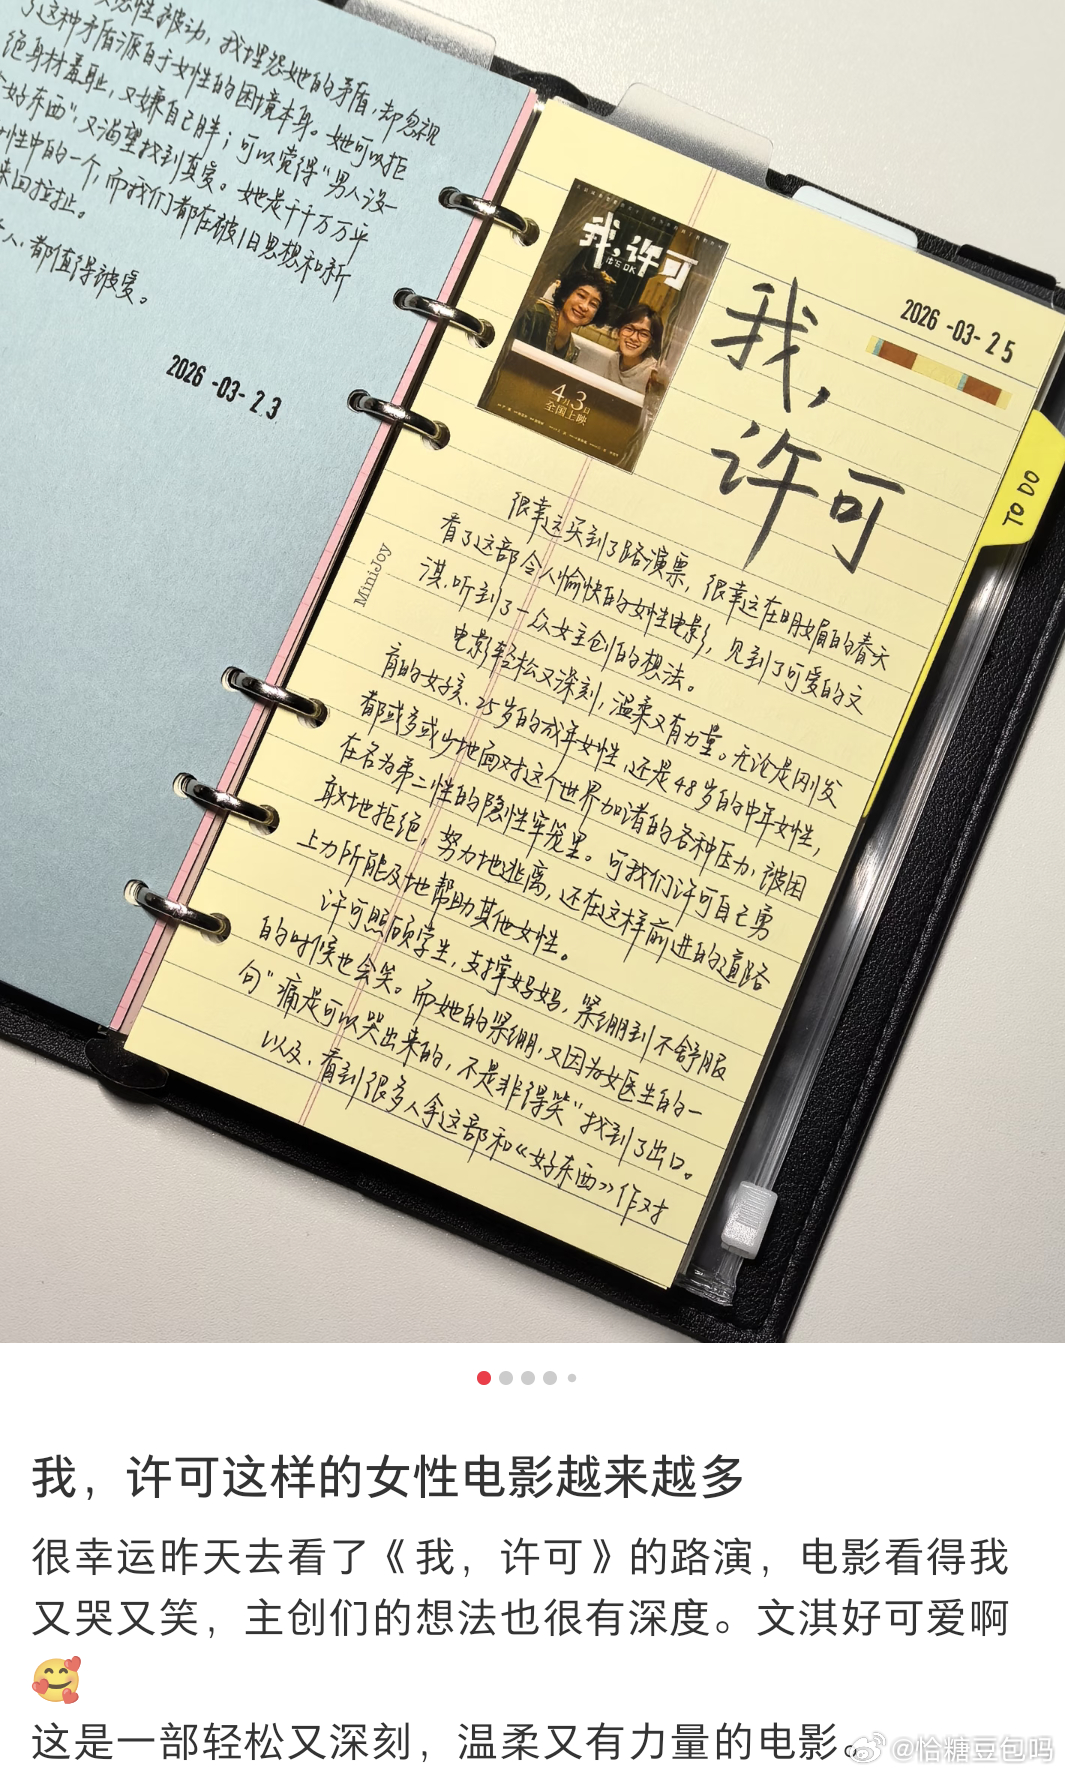 惑性被动，我埋怨她的矛盾，却忽视
了这种矛盾源自于女性的困境本身。她可以拒
绝身材羞耻，又嫌自己胖；可以觉得“男人没
好东西”，又渴望找到真爱。她是千千万万平
女性中的一个，而我们都在被旧思想和新
来回拉扯。
人，都值得被爱。
2026 -03- 23
我，许可
IT'S OK
4月3日
全国上映
我，
许可
2026 -03- 25
TO DO
MiniJoy
很幸运买到了路演票，很幸运在明媚的春天
看了这部令人愉快的女性电影，见到了可爱的文
淇，听到了一众女主创的想法。
电影轻松又深刻，温柔又有力量。无论是刚发
育的女孩、25岁的成年女性，还是48岁的中年女性，
都或多或少地面对这个世界加诸的各种压力，被困
在名为第二性的隐性牢笼里。可我们许可自己勇
敢地拒绝，努力地逃离，还在这样前进的道路
上力所能及地帮助其他女性。
许可照顾学生，支撑妈妈，紧绷到不舒服
的时候也会笑。而她的紧绷，又因为女医生的一
句“痛是可以哭出来的，不是非得笑”找到了出口。
以及，看到很多人拿这部和《好东西》作对
我，许可这样的女性电影越来越多
很幸运昨天去看了《我，许可》的路演，电影看得我
又哭又笑，主创们的想法也很有深度。文淇好可爱啊
🥰
这是一部轻松又深刻，温柔又有力量的电影。
@恰糖豆包吗